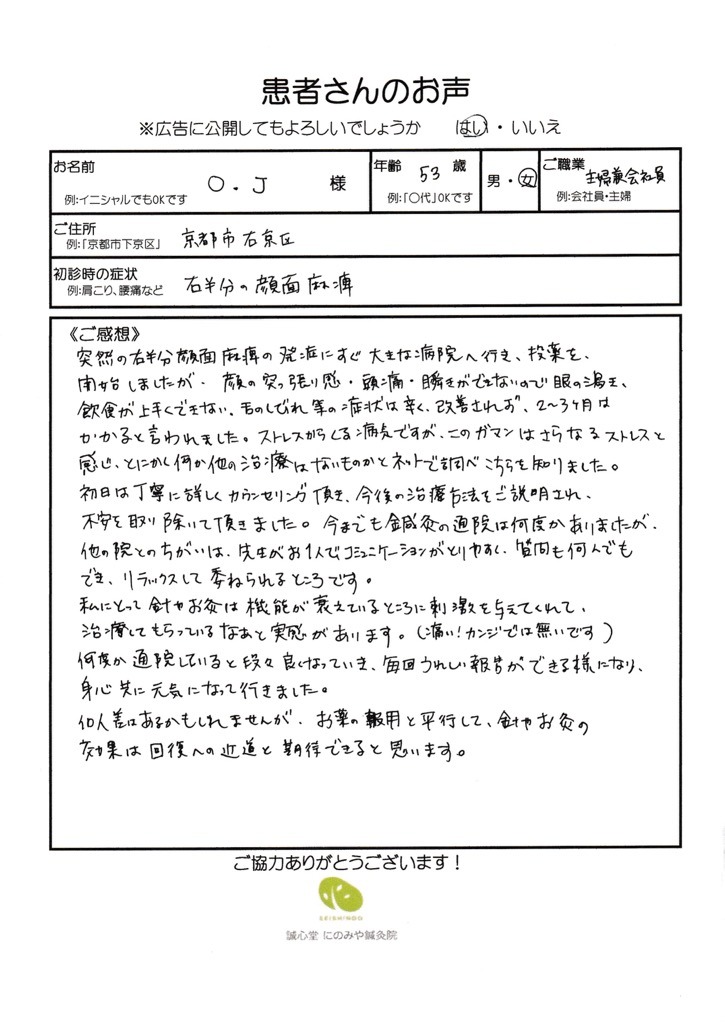 患者さんのお声
※広告に公開してもよろしいでしょうか　はい・いいえ
お名前 O.J 様 年齢 53 歳 男・女 ご職業 主婦兼会社員
例:イニシャルでもOKです 例:「〇代」OKです 例:会社員・主婦
ご住所
例:「京都市下京区」 京都市右京区
初診時の症状
例:肩こり、腰痛など 右半分の顔面麻痺
《ご感想》
突然の右半分顔面麻痺の発症にすぐ大きな病院へ行き、投薬を、
開始しましたが、顔の突っ張り感・頭痛・瞬きができないので眼の渇き、
飲食が上手くできない、ものしびれ等の症状は辛く、改善されず、2〜3ヶ月は
かかると言われました。ストレスからくる病気ですが、このガマンはさらなるストレスと
感じ、とにかく何か他の治療はないものかとネットで調べこちらを知りました。
初日は丁寧に詳しくカウンセリング頂き、今後の治療方法をご説明され、
不安を取り除いて頂きました。今までも鍼灸の通院は何度かありましたが、
他の院とのちがいは、先生がお1人でコミュニケーションがとりやすく、質問も何んでも
でき、リラックスして委ねられるところです。
私にとって針やお灸は機能が衰えているところに刺激を与えてくれて、
治療してもらっているなあと実感があります。(痛い!カンジでは無いです)
何度か通院していると段々良くなっていき、毎回うれしい報告ができる様になり、
身心共に元気になって行きました。
個人差はあるかもしれませんが、お薬の服用と平行して、針やお灸の
効果は回復への近道と期待できると思います。
ご協力ありがとうございます!
SEISHINDO
誠心堂 にのみや鍼灸院